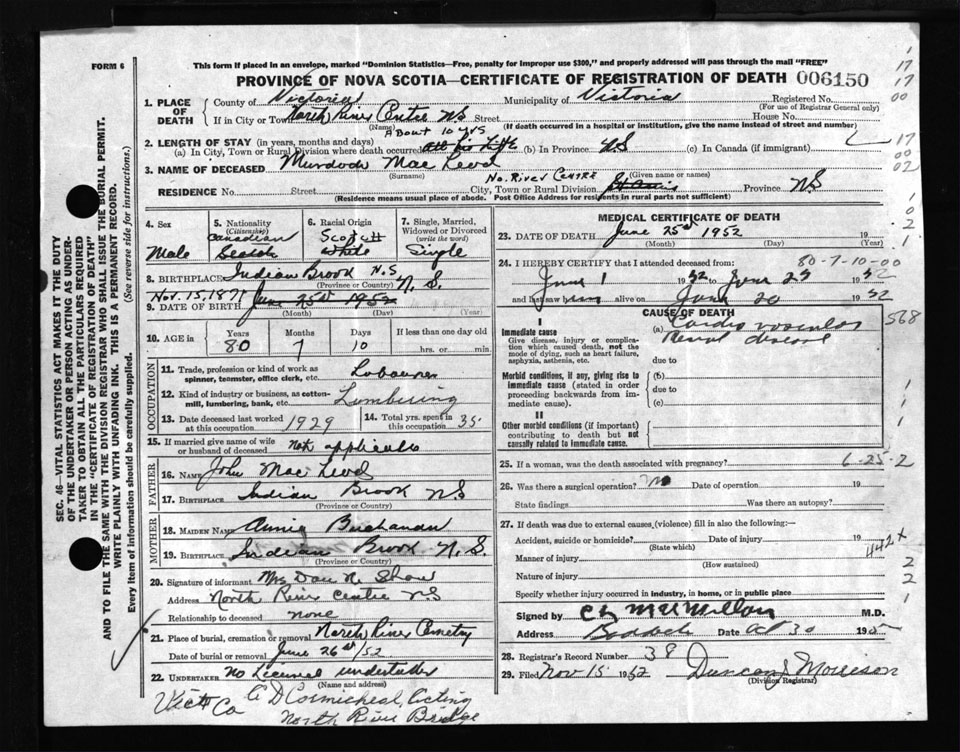 FORM 6
This form if placed in an envelope, marked "Dominion Statistics—Free, penalty for improper use $300," and properly addressed will pass through the mail "FREE"
PROVINCE OF NOVA SCOTIA—CERTIFICATE OF REGISTRATION OF DEATH 006150
1. PLACE OF DEATH
County of Victoria Municipality of Victoria Registered No.
(For use of Registrar General only)
If in City or Town North River Centre N.S Street House No.
(Name) (If death occurred in a hospital or institution, give the name instead of street and number)
About 10 yrs
2. LENGTH OF STAY (in years, months and days)
(a) In City, Town or Rural Division where death occurred All his Life (b) In Province N.S (c) In Canada (if immigrant)
3. NAME OF DECEASED Murdoch Mac Leod
(Surname) (Given name or names)
No. River Centre
RESIDENCE No. Street City, Town or Rural Division St Anns Province N.S
(Residence means usual place of abode. Post Office Address for residents in rural parts not sufficient)
4. Sex
Male
5. Nationality
(Citizenship)
Canadian
Scotch
6. Racial Origin
Scotch
White
7. Single, Married,
Widowed or Divorced
(write the word)
Single
8. BIRTHPLACE Indian Brook N.S N.S.
(Province or Country)
Nov. 15, 1871
9. DATE OF BIRTH June 25st 1952
(Month) (Day) (Year)
10. AGE in
Years
80
Months
7
Days
10
If less than one day old
hrs. or min.
OCCUPATION
11. Trade, profession or kind of work as
spinner, teamster, office clerk, etc. Labourer
12. Kind of industry or business, as cotton-
mill, lumbering, bank, etc. Lumbering
13. Date deceased last worked
at this occupation 1929
14. Total yrs. spent in
this occupation 35
15. If married give name of wife
or husband of deceased Not applicable
FATHER
16. Name John Mac Leod
17. Birthplace Indian Brook N.S
(Province or Country)
MOTHER
18. Maiden Name Annie Buchanan
19. Birthplace Indian Brook N.S.
(Province or Country)
20. Signature of informant Mrs Dan R. Shaw
Address North River Centre N.S
Relationship to deceased none
21. Place of burial, cremation or removal North River Cemetry
Date of burial or removal June 26st/52
22. UNDERTAKER No Licensed undertaker
(Name and address)
Vict Co A D Carmichael, Acting
North River Bridge
MEDICAL CERTIFICATE OF DEATH
23. DATE OF DEATH June 25st 1952
(Month) (Day) (Year)
24. I HEREBY CERTIFY that I attended deceased from: 80-7-10-00
June 1 1952 to June 25 1952
and last saw him alive on June 20 1952
CAUSE OF DEATH
I
Immediate cause
Give disease, injury or complica-
tion which caused death, not the
mode of dying, such as heart failure,
asphyxia, asthenia, etc.
(a) Cardio vascular
Renal disease
due to
568
Morbid conditions, if any, giving rise to
immediate cause (stated in order
proceeding backwards from im-
mediate cause).
(b)
due to
(c)
II
Other morbid conditions (if important)
contributing to death but not
causally related to immediate cause.
25. If a woman, was the death associated with pregnancy? 6-25-2
26. Was there a surgical operation? No Date of operation 19
State findings Was there an autopsy?
27. If death was due to external causes, (violence) fill in also the following:—
Accident, suicide or homicide? Date of injury 19
(State which)
442+
Manner of injury
(How sustained)
Nature of injury
Specify whether injury occurred in industry, in home, or in public place
Signed by M.D.
Address Baddeck Date Oct 30 195
28. Registrar's Record Number 38
29. Filed Nov 15 1952 Duncan J Morrison
(Division Registrar)
SEC. 46—VITAL STATISTICS ACT MAKES IT THE DUTY
OF THE UNDERTAKER OR PERSON ACTING AS UNDER-
TAKER TO OBTAIN ALL THE PARTICULARS REQUIRED
IN THE "CERTIFICATE OF REGISTRATION OF DEATH"
AND TO FILE THE SAME WITH THE DIVISION REGISTRAR WHO SHALL ISSUE THE BURIAL PERMIT.
WRITE PLAINLY WITH UNFADING INK. THIS IS A PERMANENT RECORD.
Every item of information should be carefully supplied. (See reverse side for instructions.)
17
17
00
17
00
02
1
0
2
1
1
1
1
2
2
1